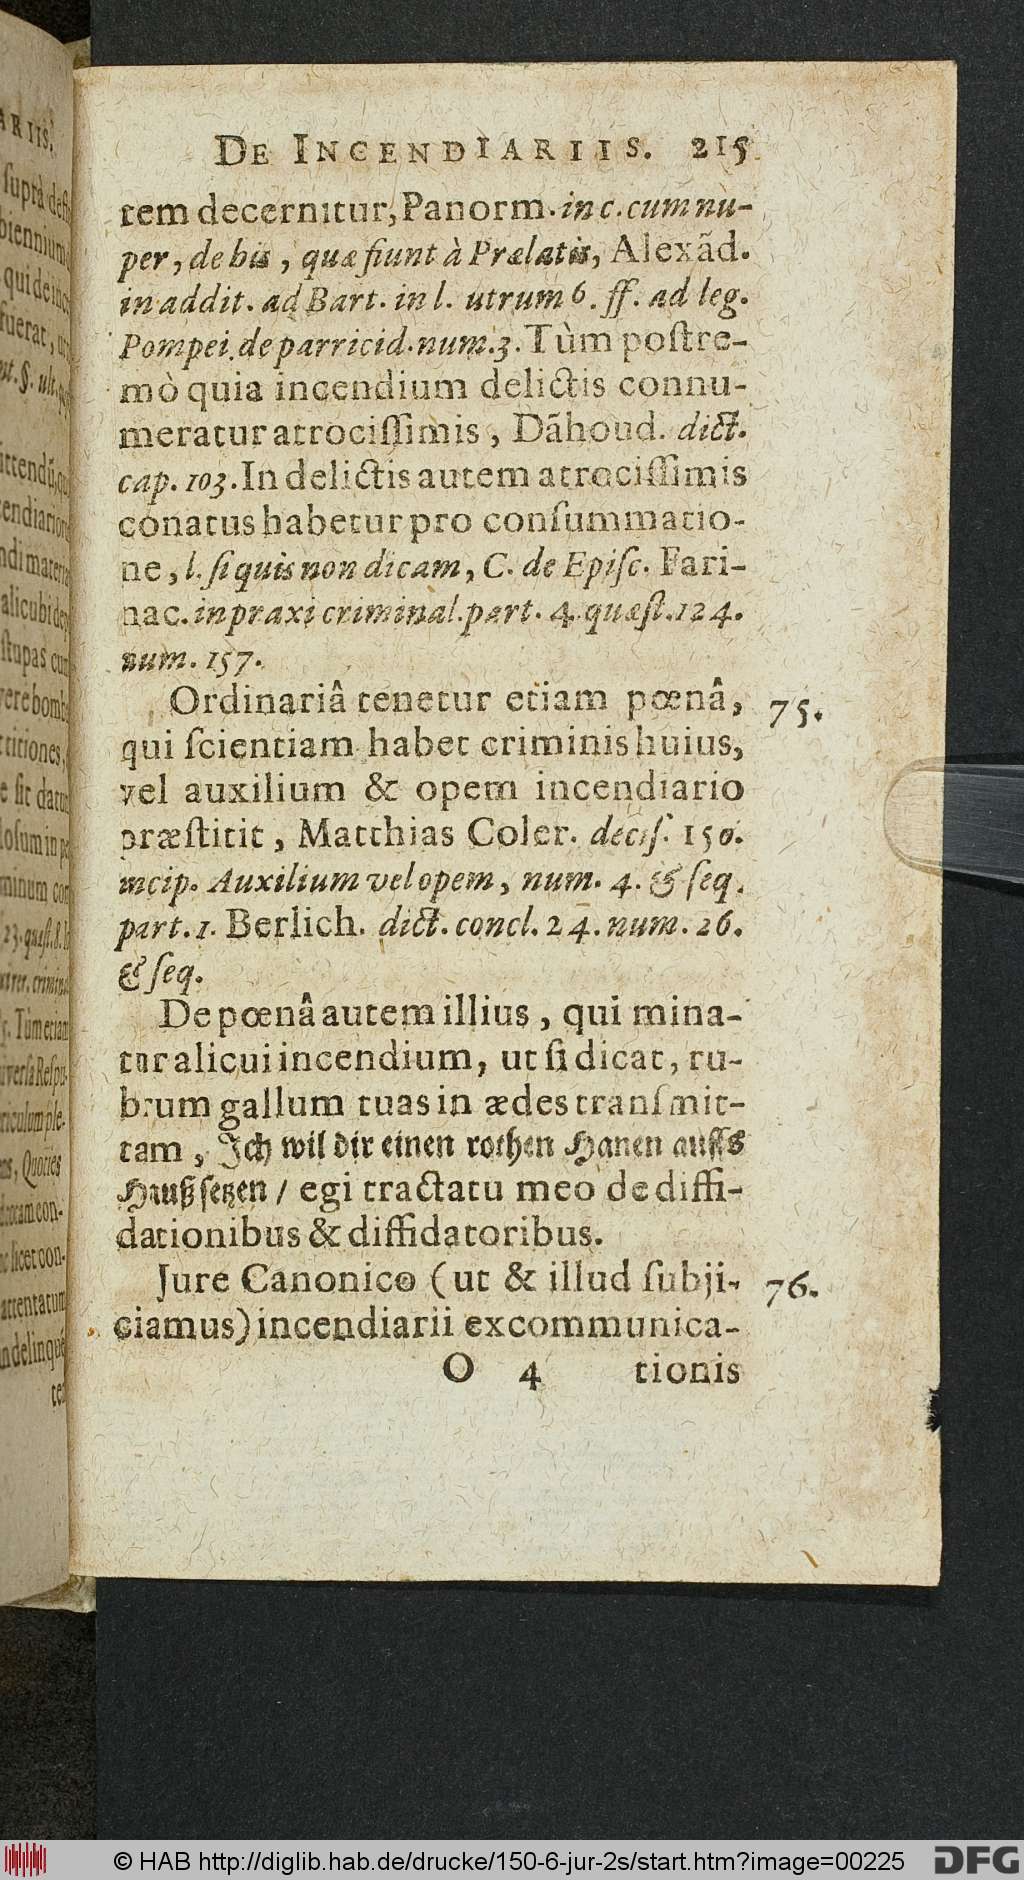 DE INCENDIARIIS. 215
tem decernitur, Panorm. in c. cum nu-
per, de his, quæ fiunt à Prælatis, Alexãd.
in addit. ad Bart. in l. utrum 6. ff. ad leg.
Pompei. de parricid. num. 3. Tùm postre-
mò quia incendium delictis connu-
meratur atrocissimis, Dãhoud. dict.
cap. 103. In delictis autem atrocissimis
conatus habetur pro consummatio-
ne, l. si quis non dicam, C. de Episc. Fari-
nac. in praxi criminal. part. 4. quæst. 124.
num. 157.
Ordinariâ tenetur etiam pœnâ, 75.
qui scientiam habet criminis huius,
vel auxilium & opem incendiario
præstitit, Matthias Coler. decis. 150.
incip. Auxilium vel opem, num. 4. & seq.
part. 1. Berlich. dict. concl. 24. num. 26.
& seq.
De pœnâ autem illius, qui mina-
tur alicui incendium, ut si dicat, ru-
brum gallum tuas in ædes transmit-
tam, Ich wil dir einen rothen Hanen auffs
Hauß setzen / egi tractatu meo de diffi-
dationibus & diffidatoribus.
Jure Canonico (ut & illud subji- 76.
ciamus) incendiarii excommunica-
O 4 tionis
ARIIS.
suprà
biennium
fuerat,
alicubi
stupas cum
titiones,
e sit
minum
Tùm etiam
Quoties
licet con-
attentatum
© HAB http://diglib.hab.de/drucke/150-6-jur-2s/start.htm?image=00225
DFG